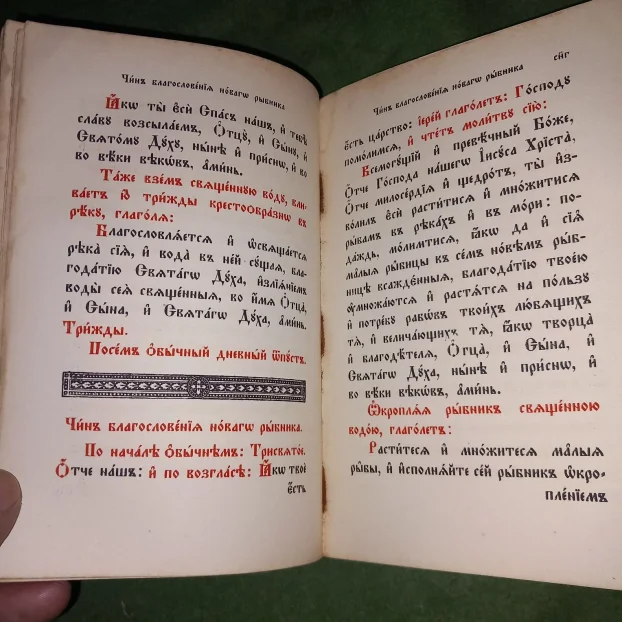 Чи́нъ благослове́нїѧ но́вагѡ ры́бника
Ꙗ҆́кѡ ты̀ є҆сѝ Спа́съ на́шъ, и҆ тебѣ̀
сла́ву возсыла́емъ, Ѻ҆тцꙋ̀, и҆ Сы́нꙋ, и҆
Свѧто́мꙋ Дꙋ́хꙋ, ны́нѣ и҆ при́снѡ, и҆ во
во вѣ́ки вѣкѡ́въ, а҆ми́нь.
Та́же взе́мъ свѧще́ннꙋю во́дꙋ, вли-
ва́етъ ю҆̀ три́жды крестоѻбра́знѡ въ
рѣкꙋ̀, глаго́лѧ:
Благословлѧ́етсѧ и҆ ѡ҆свѧща́етсѧ
рѣка̀ сїѧ̀, и҆ вода̀ въ не́й сꙋ́щаѧ, бла-
года́тїю Свѧта́гѡ Дꙋ́ха, и҆злїѧ́нїемъ
воды̀ сеѧ̀ свѧще́нныѧ, во и҆́мѧ Ѻ҆тца̀,
и҆ Сы́на, и҆ Свѧта́гѡ Дꙋ́ха, а҆ми́нь.
Три́жды.
Посе́мъ ѻ҆бы́чный дневны́й ѿпꙋ́стъ.
Чи́нъ благослове́нїѧ но́вагѡ ры́бника.
По нача́лѣ ѻ҆бы́чнѣмъ: Трисвѧто́е.
Ѻ҆́тче на́шъ: и҆ по во́згласѣ: Ꙗ҆́кѡ твоѐ
є҆́сть
Чи́нъ благослове́нїѧ но́вагѡ ры́бника
сн҃г
є҆́сть ца́рство: і҆ере́й глаго́летъ: Го́сподꙋ
помо́лимсѧ, и҆ чте́тъ моли́твꙋ сїю̀:
Всемогꙋ́щїй и҆ превѣ́чный Бо́же,
Ѻ҆́тче Го́спода на́шегѡ І҆исꙋ́са Хрїста̀,
Ѻ҆́тче милосе́рдїѧ и҆ щедро́тъ, ты̀ и҆з-
во́лилъ є҆сѝ расти́тисѧ и҆ мно́житисѧ
ры́бамъ въ рѣка́хъ и҆ въ мо́ри: по-
да́ждь, мо́лимтисѧ, ꙗ҆́кѡ да и҆ сїѧ̀
ма̑лыѧ ры́бицы въ се́мъ но́вѣмъ ры́б-
ницѣ всажде́нныѧ, благода́тїю твое́ю
ᲂу҆мно́жаютсѧ и҆ растѧ́тсѧ на по́льзꙋ
и҆ потре́бꙋ рабѡ́въ твои́хъ лю́бѧщихъ
тѧ̀, и҆ велича́ющихъ тѧ̀, ꙗ҆́кѡ творца̀
и҆ благодѣ́телѧ, Ѻ҆тца̀, и҆ Сы́на, и҆
Свѧта́гѡ Дꙋ́ха, ны́нѣ и҆ при́снѡ, и҆
во вѣ́ки вѣкѡ́въ, а҆ми́нь.
Ѡ҆кроплѧ́ѧ ры́бникъ свѧще́нною
водо́ю, глаго́летъ:
Расти́тесѧ и҆ мно́житесѧ ма̑лыѧ
ры̑бы, и҆ и҆сполнѧ́йте се́й ры́бникъ ѡ҆кро-
пле́нїемъ